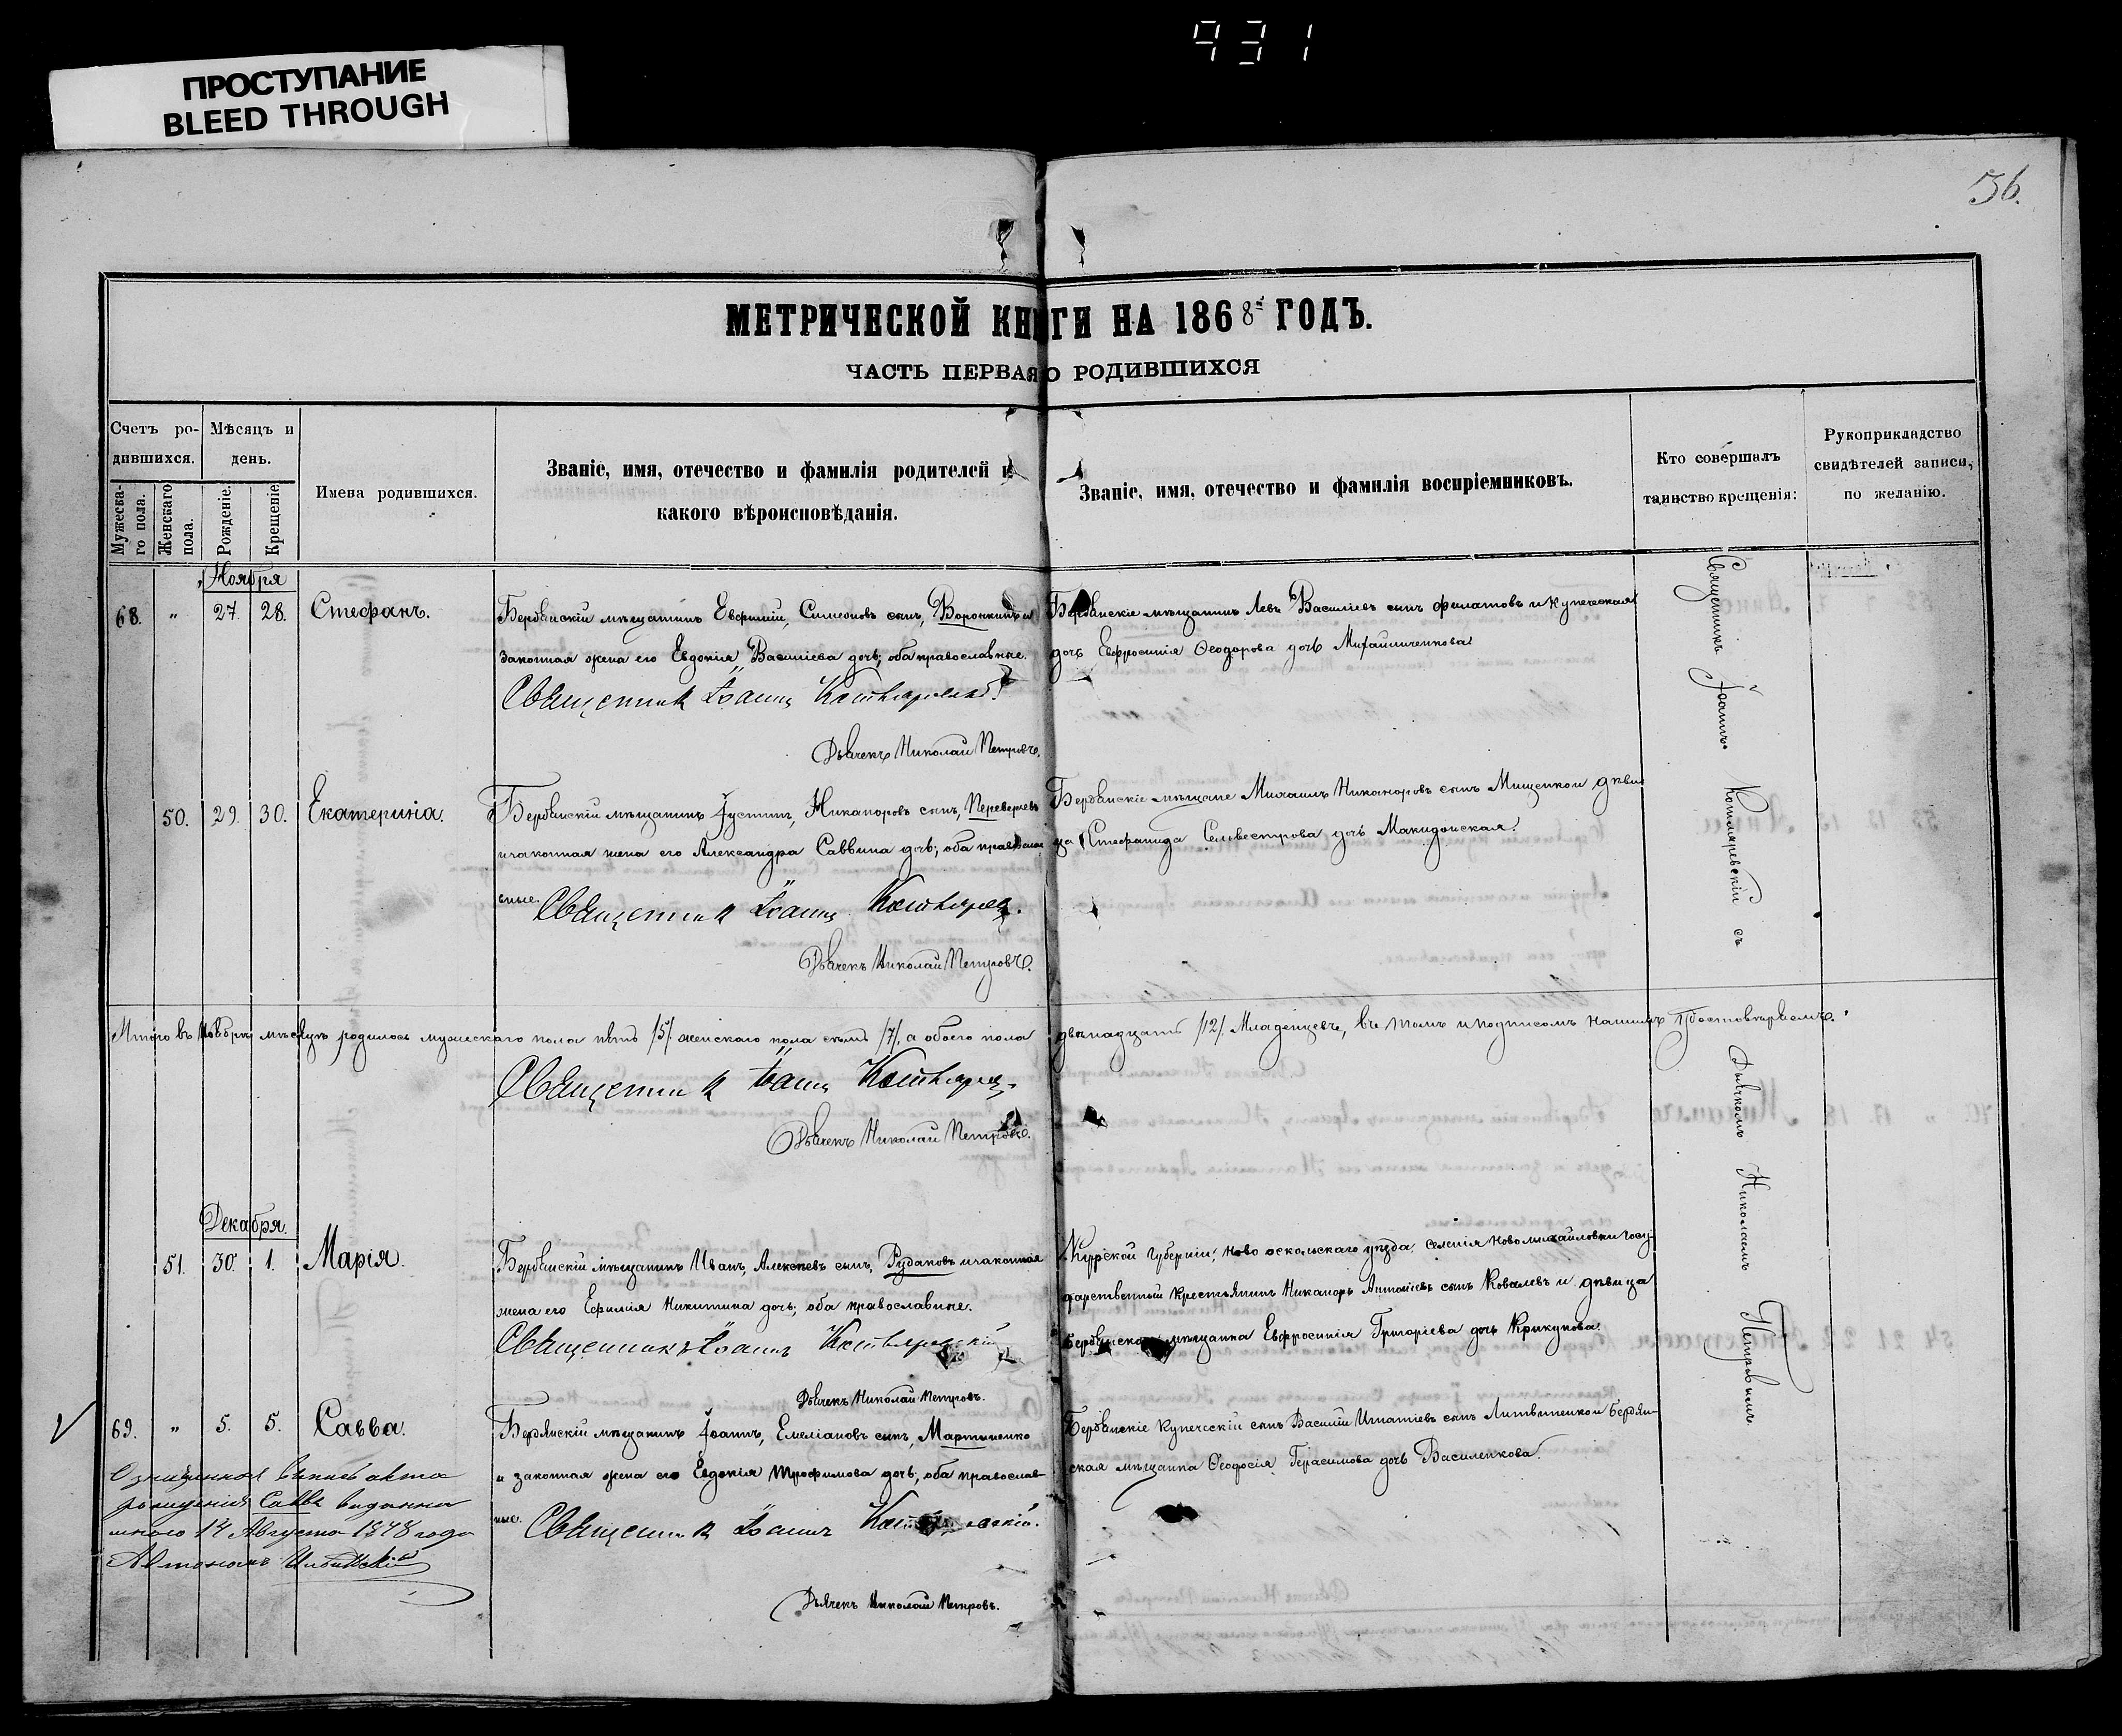 931
ПРОСТУПАНИЕ
BLEED THROUGH
56.
МЕТРИЧЕСКОЙ КНИГИ НА 1868й ГОДЪ.
ЧАСТЬ ПЕРВАЯ О РОДИВШИХСЯ
Счетъ ро-
дившихся.
Мужеска-
го пола.
Женскаго
пола.
Мѣсяцъ и
день.
Рожденіе.
Крещеніе.
Имена родившихся.
Званіе, имя, отечество и фамилія родителей и
какого вѣроисповѣданія.
Званіе, имя, отечество и фамилія воспріемниковъ.
Кто совершалъ
таинство крещенія:
Рукоприкладство
свидѣтелей записи,
по желанію.
Ноября
68. " 27. 28. Стефанъ.
Бердянскій мѣщанинъ Евфимій, Симеоновъ сынъ, Воронкинъ и
законная жена его Евдокія, Василіева дочь, оба православные.
Священник Іоанн Котляревскій
Дьячекъ Николай Петровъ.
Бердянскіе мѣщанинъ Левъ Василіевъ сынъ Филатовъ и купеческая
дочь Евфросинія Ѳеодорова дочь Михайличенкова
50. 29. 30. Екатерина.
Бердянскій мѣщанинъ Іустинъ, Никаноровъ сынъ, Переверзевъ
и законная жена его Александра Саввина дочь; оба православ
ные. Священник Іоанн Котлярев.
Дьячекъ Николай Петровъ.
Бердянскіе мѣщане Михаилъ Никаноровъ сынъ Мищенко и дѣви
ца Стефанида Селвестрова дочь Македонская.
Итого въ Ноябрѣ мѣсяцѣ родилось мужескаго пола пять /5/. женскаго пола семь /7/, а обоего пола двѣнадцать /12/. Младенцевъ, въ томъ и подписомъ нашимъ удостовѣряемъ.
Священник Іоанн Котлярев.
Дьячекъ Николай Петровъ.
Декабря.
51. 30. 1. Марія.
Бердянскій мѣщанинъ Иванъ, Алексѣевъ сынъ, Рудаковъ и законная
жена его Ефимія Никитина дочь; оба православные.
Священникъ Іоаннъ Котляревскій
Дьячекъ Николай Петровъ.
Курской Губерніи, Ново оскольскаго уѣзда, селенія Ново михайловки Госу-
дарственный крестьянинъ Никаноръ Антоніевъ сынъ Ковалевъ и дѣвица
Бердянская мѣщанка Евфросинія Григоріева дочь Крикунова.
69. " 5. 5. Савва.
Бердянскій мѣщанинъ Іоаннъ, Емеліановъ сынъ, Мартыненко
и законная жена его Евдокія Трофимова дочь; оба православ-
ные. Священник Іоаннъ Котляревскій.
Дьячекъ Николай Петровъ.
Бердянскіе купеческій сынъ Василій Игнатіевъ сынъ Литвиненко и Бердян-
ская мѣщанка Ѳеодосія Герасимова дочь Василенкова.
выпись акта
рожденія Саввы выданна
мною 14 Августа 1878 года
Священникъ Іоаннъ Котляревскій съ
Дьячкомъ Николаемъ Петровымъ.